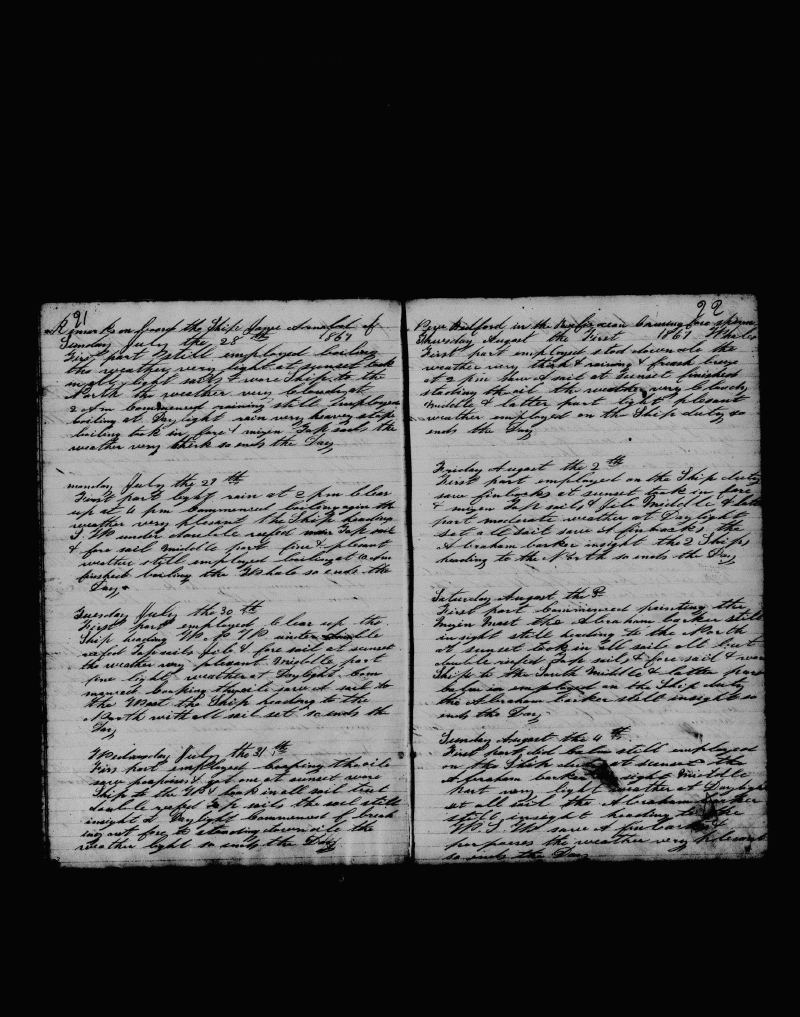 91
Remarks on board the Ship Jame Arnold of
Sunday July the 28th 1867
First part still employed boiling
the weather very light at sunset took
in all light sails & wore Ship to the
North the weather very Cloudy at
2 Am Commenced raining still Employed
boiling at Daylight rain very heavy stop
boiling took in fore & mizen Topsails the
weather very thick so ends the Day
monday July the 29th
First part light rain at 2 pm Clear
up at 4 pm Commenced boiling again the
weather very plesent the Ship heading
S. W under double refed main Topsail
& fore sail middle part fine & plesent
weather still employed boiling at
finished boiling the Whale so ends the
Day
Tuesday July the 30th
First part employed Clear up the
Ship heading W. S. W under double
refed Topsails jib & fore sail at sunset
the weather very plesent middle part
fine light weather at Daylight Com
menced Cooping the oil saw A sail to
the West the Ship heading to the
North with all sail set so ends the
Day
Wedansday July the 31th
Firs part employed Cooping the oile
saw porpoises & got one at sunset wore
Ship to the W & took in all sail but
double refed Topsails the sail still
insight at Daylight Commenced breek
ing out fore to stoading down oile the
weather light so ends the Day
92
New Bedford in the Pacific ocean Cruising fore sperm
Thursday August the First 1867 Whales
First part employed stod down oile the
weather very thick & raining & fresh breeze
at 2 pm saw A sail at Sunset finished
stoding the oil the weather very Cloudy
middle & latter part light plesent
weather employed on the Ship duty so
ends the Day
Friday August the 2th
First part employed on the Ship duty
saw finbacks at sunset took in fore
& mizen Topsails & jib middle & latter
part moderate weather at Daylight
set all sail saw finbacks the
Abraham barker insight the 2 Ships
heading to the North so ends the Day
Saturday August the 3
First part Commenced painting the
Mizen Mast the Abraham barker still
insight still heading to the North
at sunset took in all sail all but
double refed Topsails & fore sail & wore
Ship to the South middle & latter part
employed on the Ship duty
the Abraham barker still insight so
ends the Day
Sunday August the 4th
First part still employed
on the Ship duty at sunset the
Abraham barker insight middle
part very light weather at Daylight
set all sail the Abraham barker
still insight heading to the
W. S. W saw A finback &
porpoises the weather very plesent
so ends the Day